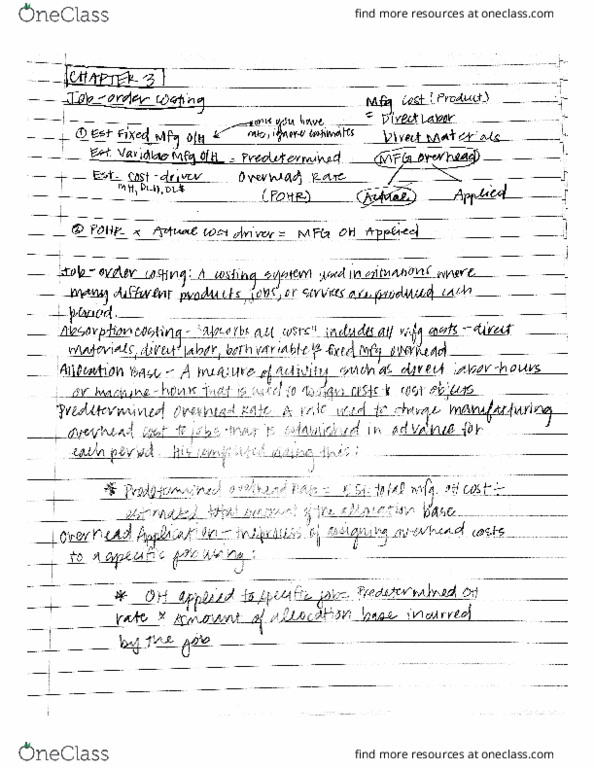 OneClass
find more resources at oneclass.com
CHAPTER 3
Job-order costing
Mfg Cost (Product)
= Direct Labor
Direct Materials
MFG Overhead
Actual Applied
① Est Fixed Mfg O/H
once you have
rate, ignore estimates
Est. Variable Mfg O/H = Predetermined
Est. cost-driver Overhead Rate
MH, DLH, DL$ (POHR)
② POHR × Actual Cost driver = MFG OH Applied
Job-order costing: A costing system used in situations where
many different products, jobs, or services are produced each
period.
Absorption costing - "absorbs all costs", includes all mfg costs - direct
materials, direct labor, both variable & fixed mfg overhead
Allocation Base - A measure of activity such as direct labor-hours
or machine-hours that is used to assign costs to cost objects
Predetermined Overhead Rate. A rate used to charge manufacturing
overhead cost to jobs that is established in advance for
each period. It is computed using this:
* Predetermined overhead Rate = Est. total mfg. OH cost ÷
estimated total amount of the allocation base
Overhead Application - the process of assigning overhead costs
to a specific job using:
* OH applied to specific job = Predetermined OH
rate × Amount of allocation base incurred
by the job
OneClass
find more resources at oneclass.com